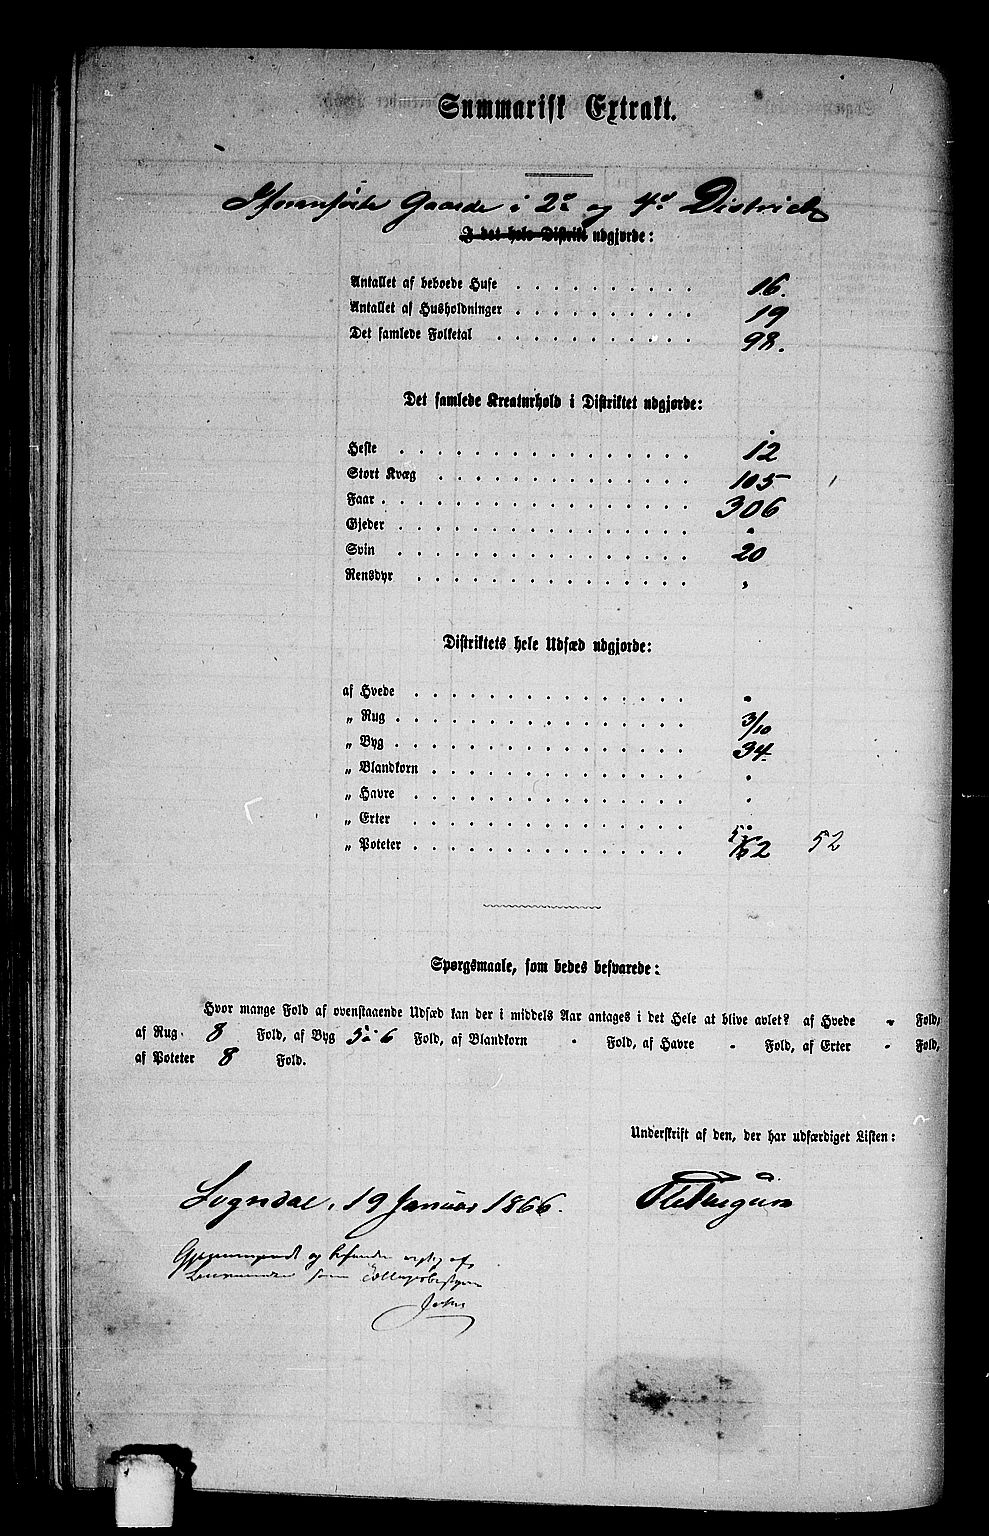 Summarisk Extrakt.
Gaarde i 2d og 4d District
I det hele Distrikt udgjorde:
Antallet af beboede Huse . . . . . . . . . . 16.
Antallet af Husholdninger . . . . . . . . . . 19
Det samlede Folketal . . . . . . . . . . . 98.
Det samlede Kreaturhold i Distriktet udgjorde:
Heste . . . . . . . . . . . . . . . . 12
Stort Kvæg . . . . . . . . . . . . . . 105
Faar . . . . . . . . . . . . . . . . . 306
Gjeder . . . . . . . . . . . . . . . . "
Svin . . . . . . . . . . . . . . . . 20
Rensdyr . . . . . . . . . . . . . . . "
Distriktets hele Udsæd udgjorde:
af Hvede . . . . . . . . . . . . . . . "
„ Rug . . . . . . . . . . . . . . . . 3/10
„ Byg . . . . . . . . . . . . . . . . 34.
„ Blandkorn . . . . . . . . . . . . . . "
„ Havre . . . . . . . . . . . . . . . "
„ Erter . . . . . . . . . . . . . . . "
„ Poteter . . . . . . . . . . . . . . . 62 52
Spørgsmaale, som bedes besvarede:
Hvor mange Fold af ovenstaaende Udsæd kan der i middels Aar antages i det Hele at blive avlet? af Hvede " Fold,
af Rug 8 Fold, af Byg 5 à 6 Fold, af Blandkorn " Fold, af Havre " Fold, af Erter " Fold,
af Poteter 8 Fold.
Underskrift af den, der har udfærdiget Listen:
Sogndal, 19 Januar 1866.
Gjennemgaaet og befunden rigtig af
Lensmanden som Tællingsbestyrer